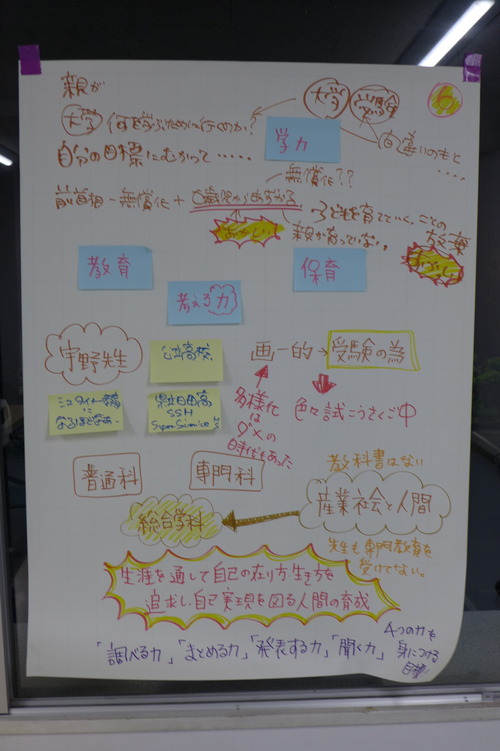 親が
大学 受験 6
大学 何を学ぶために行くのか?
学力
間違いのもと
・・・・
自分の目標にむかって・・・・・
無償化??
前首相-無償化+0歳児からあずかる
子どもを育てていく、ことの放棄
おかしい!
親が育ってない。
教育
保育
考える力
宇野先生
公立高校
画一的→受験の為
なるほどなあ。
県立日田高
SSH
多様化はダ×の時代もあった
色々試こうさくご中
普通科
専門科
教科書はない
産業社会と人間
総合学科
先生も専門教育を受けてない。
生涯を通して自己の在り方・生き方を
追求し、自己実現を図る人間の育成
「調べる力」「まとめる力」「発表する力」「聞く力」
4つの力を
身につける
目標!